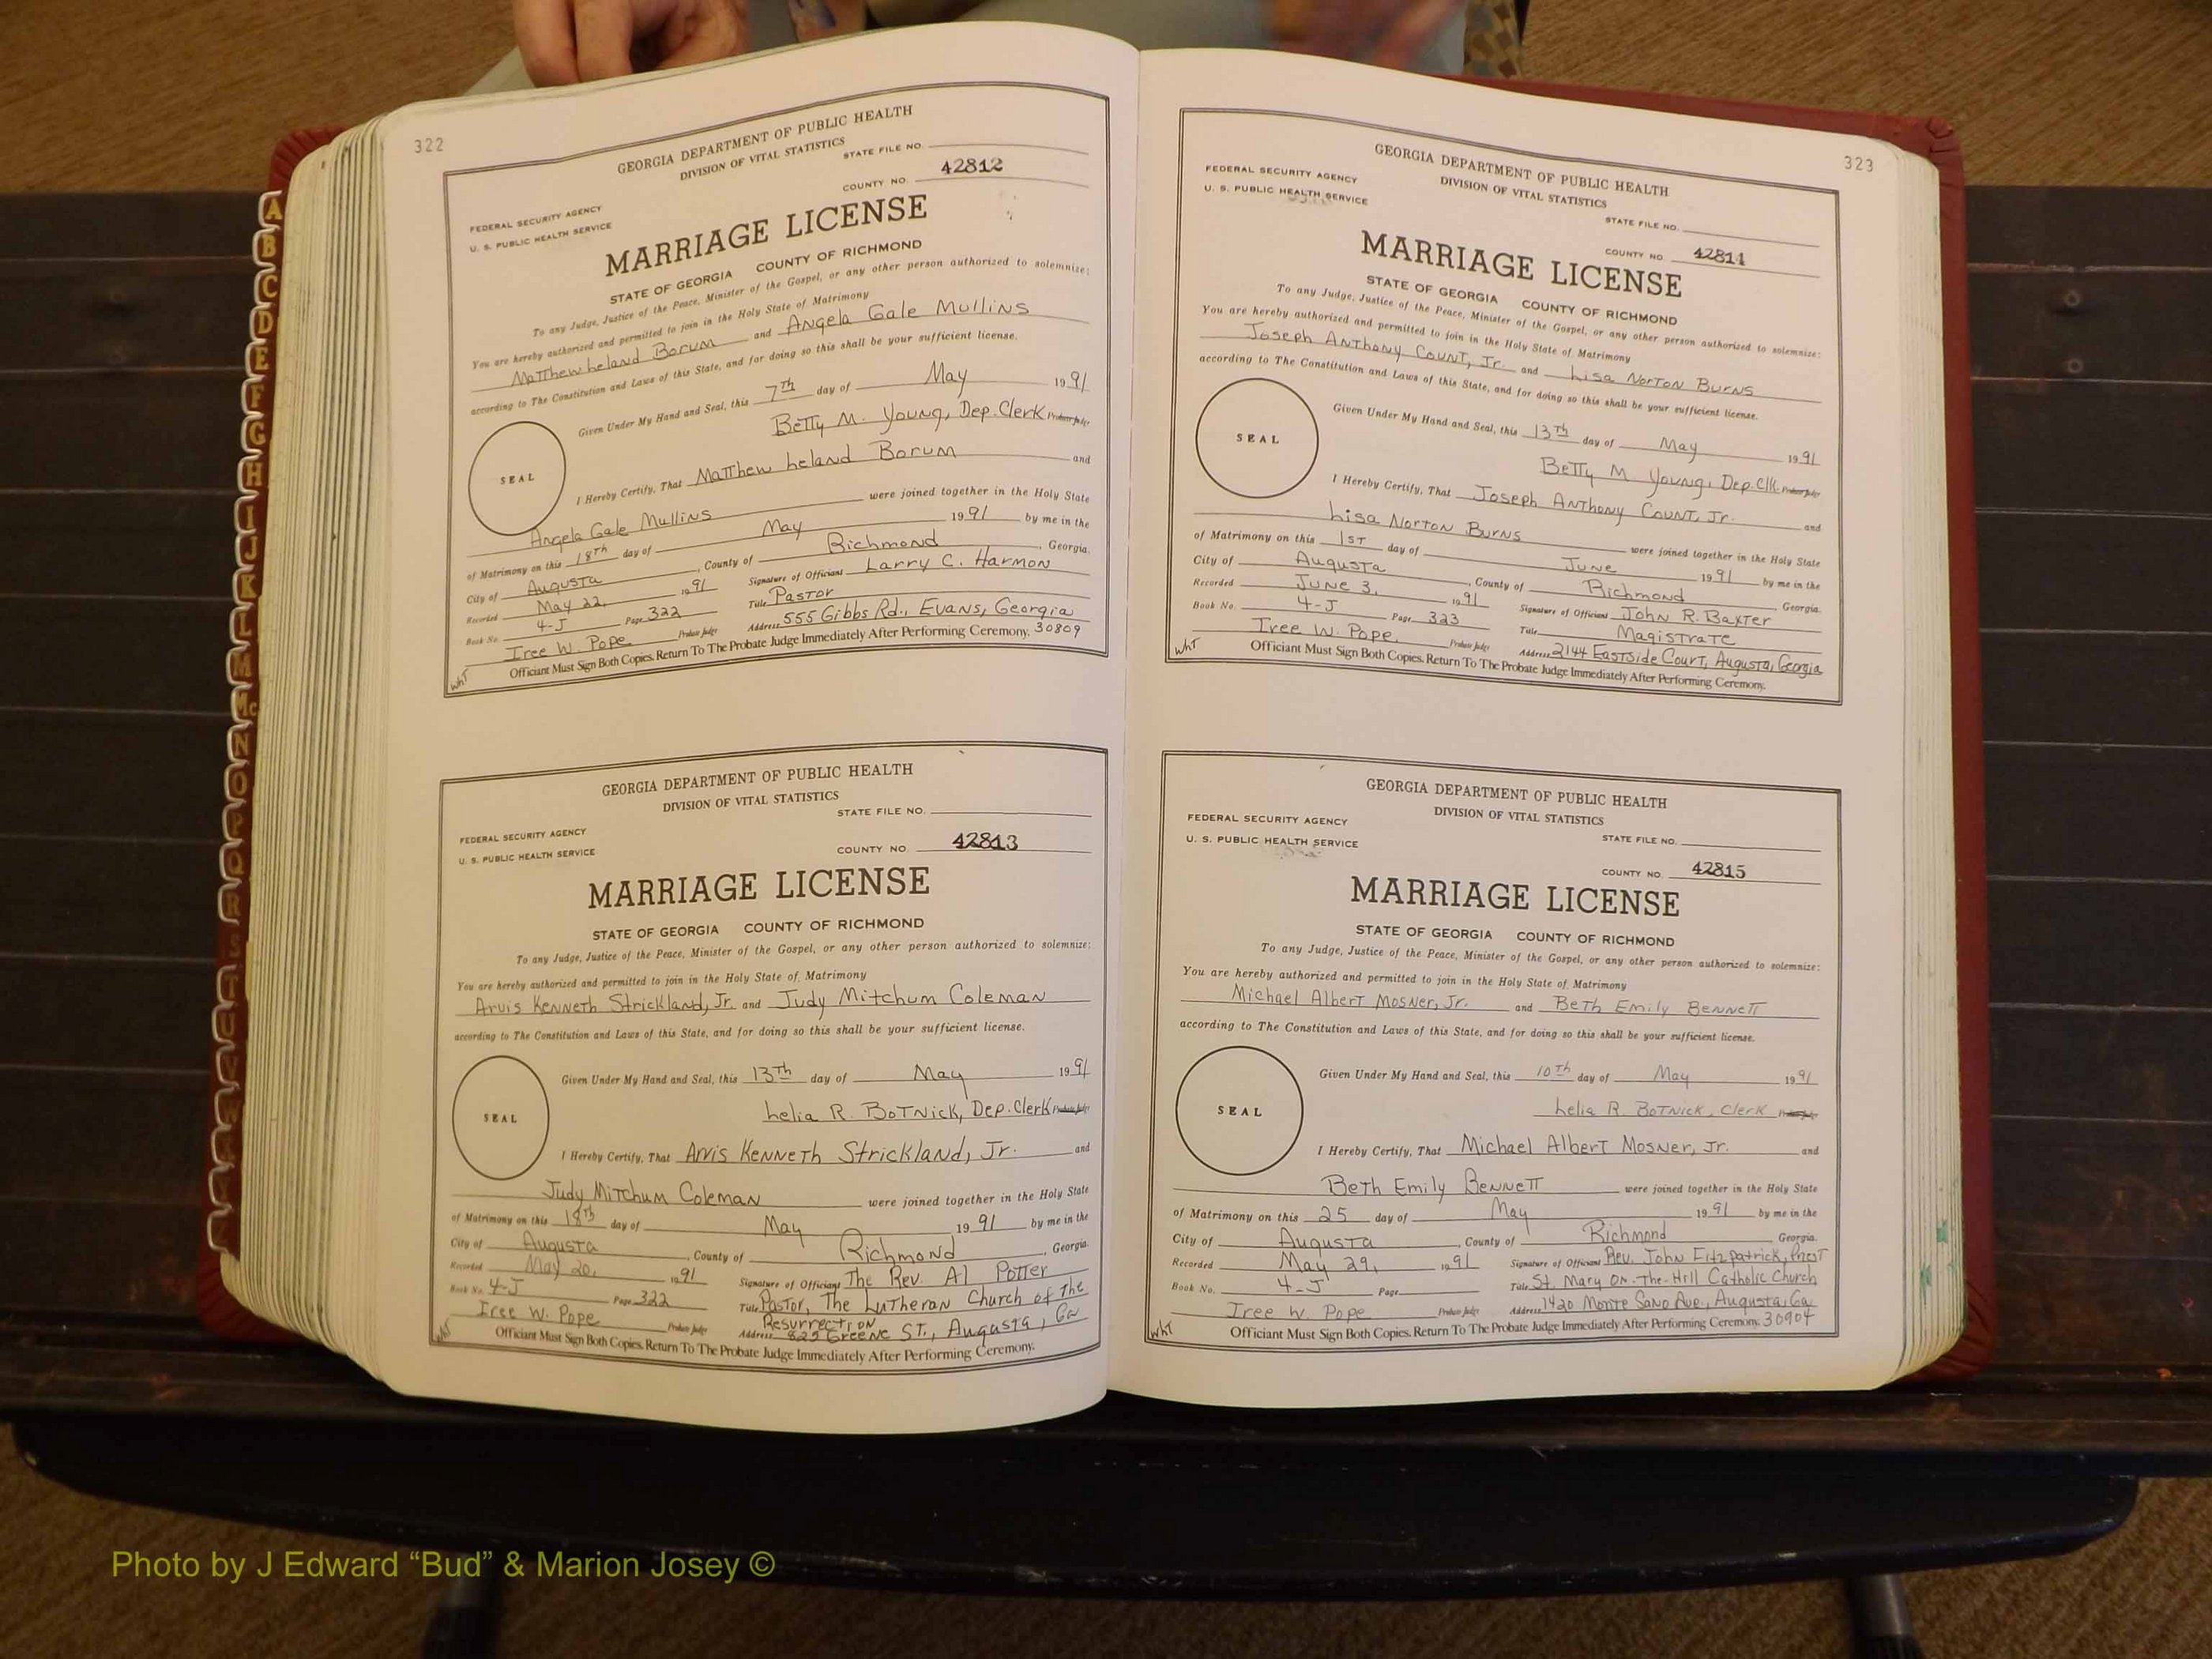 322
GEORGIA DEPARTMENT OF PUBLIC HEALTH
DIVISION OF VITAL STATISTICS
STATE FILE NO.
COUNTY NO. 42812
FEDERAL SECURITY AGENCY
U. S. PUBLIC HEALTH SERVICE
MARRIAGE LICENSE
STATE OF GEORGIA COUNTY OF RICHMOND
To any Judge, Justice of the Peace, Minister of the Gospel, or any other person authorized to solemnize:
You are hereby authorized and permitted to join in the Holy State of Matrimony
Matthew Leland Borum and Angela Gale Mullins
according to The Constitution and Laws of this State, and for doing so this shall be your sufficient license.
Given Under My Hand and Seal, this 7th day of May 1991
Betty M. Young, Dep. Clerk Probate Judge
SEAL
I Hereby Certify, That Matthew Leland Borum and
Angela Gale Mullins were joined together in the Holy State
of Matrimony on this 18th day of May 1991 by me in the
City of Augusta, County of Richmond, Georgia.
Recorded May 22, 1991 Signature of Officiant Larry C. Harmon
Book No. 4-J Page 322 Title Pastor
Iree W. Pope Probate Judge Address 555 Gibbs Rd., Evans, Georgia 30809
Officiant Must Sign Both Copies. Return To The Probate Judge Immediately After Performing Ceremony.
WHT
GEORGIA DEPARTMENT OF PUBLIC HEALTH
DIVISION OF VITAL STATISTICS
STATE FILE NO.
FEDERAL SECURITY AGENCY
U. S. PUBLIC HEALTH SERVICE
COUNTY NO. 42813
MARRIAGE LICENSE
STATE OF GEORGIA COUNTY OF RICHMOND
To any Judge, Justice of the Peace, Minister of the Gospel, or any other person authorized to solemnize:
You are hereby authorized and permitted to join in the Holy State of Matrimony
Arvis Kenneth Strickland, Jr. and Judy Mitchum Coleman
according to The Constitution and Laws of this State, and for doing so this shall be your sufficient license.
Given Under My Hand and Seal, this 13th day of May 1991
Lelia R. Botnick, Dep. Clerk Probate Judge
SEAL
I Hereby Certify, That Arvis Kenneth Strickland, Jr. and
Judy Mitchum Coleman were joined together in the Holy State
of Matrimony on this 18th day of May 1991 by me in the
City of Augusta, County of Richmond, Georgia.
Recorded May 20, 1991 Signature of Officiant The Rev. Al Potter
Book No. 4-J Page 322 Title Pastor, The Lutheran Church of the
Resurrection
Iree W. Pope Probate Judge Address 825 Greene St., Augusta, Ga
Officiant Must Sign Both Copies. Return To The Probate Judge Immediately After Performing Ceremony.
WHT
323
GEORGIA DEPARTMENT OF PUBLIC HEALTH
DIVISION OF VITAL STATISTICS
FEDERAL SECURITY AGENCY
U. S. PUBLIC HEALTH SERVICE
STATE FILE NO.
COUNTY NO. 42814
MARRIAGE LICENSE
STATE OF GEORGIA COUNTY OF RICHMOND
To any Judge, Justice of the Peace, Minister of the Gospel, or any other person authorized to solemnize:
You are hereby authorized and permitted to join in the Holy State of Matrimony
Joseph Anthony Count, Jr. and Lisa Norton Burns
according to The Constitution and Laws of this State, and for doing so this shall be your sufficient license.
Given Under My Hand and Seal, this 13th day of May 1991
Betty M Young, Dep. Clk. Probate Judge
SEAL
I Hereby Certify, That Joseph Anthony Count, Jr. and
Lisa Norton Burns were joined together in the Holy State
of Matrimony on this 1st day of June 1991 by me in the
City of Augusta, County of Richmond Georgia.
Recorded June 3, 1991 Signature of Officiant John R. Baxter
Book No. 4-J Page 323 Title Magistrate
Iree W. Pope Probate Judge Address 2144 Eastside Court, Augusta, Georgia
Officiant Must Sign Both Copies. Return To The Probate Judge Immediately After Performing Ceremony.
WHT
GEORGIA DEPARTMENT OF PUBLIC HEALTH
DIVISION OF VITAL STATISTICS
FEDERAL SECURITY AGENCY
U. S. PUBLIC HEALTH SERVICE
STATE FILE NO.
COUNTY NO. 42815
MARRIAGE LICENSE
STATE OF GEORGIA COUNTY OF RICHMOND
To any Judge, Justice of the Peace, Minister of the Gospel, or any other person authorized to solemnize:
You are hereby authorized and permitted to join in the Holy State of Matrimony
Michael Albert Mosner, Jr. and Beth Emily Bennett
according to The Constitution and Laws of this State, and for doing so this shall be your sufficient license.
Given Under My Hand and Seal, this 10th day of May 1991
Lelia R. Botnick, Clerk Probate Judge
SEAL
I Hereby Certify, That Michael Albert Mosner, Jr. and
Beth Emily Bennett were joined together in the Holy State
of Matrimony on this 25 day of May 1991 by me in the
City of Augusta, County of Richmond Georgia.
Recorded May 29, 1991 Signature of Officiant Rev. John Fitzpatrick, Priest
Book No. 4-J Page Title St. Mary On-The-Hill Catholic Church
Iree W. Pope Probate Judge Address 1420 Monte Sano Ave., Augusta, Ga
30904
Officiant Must Sign Both Copies. Return To The Probate Judge Immediately After Performing Ceremony.
WHT
A
B
C
D
E
F
G
H
I
J
K
L
M
Mc
N
O
P
Q
R
S
T
U
V
W
Photo by J Edward “Bud” & Marion Josey ©